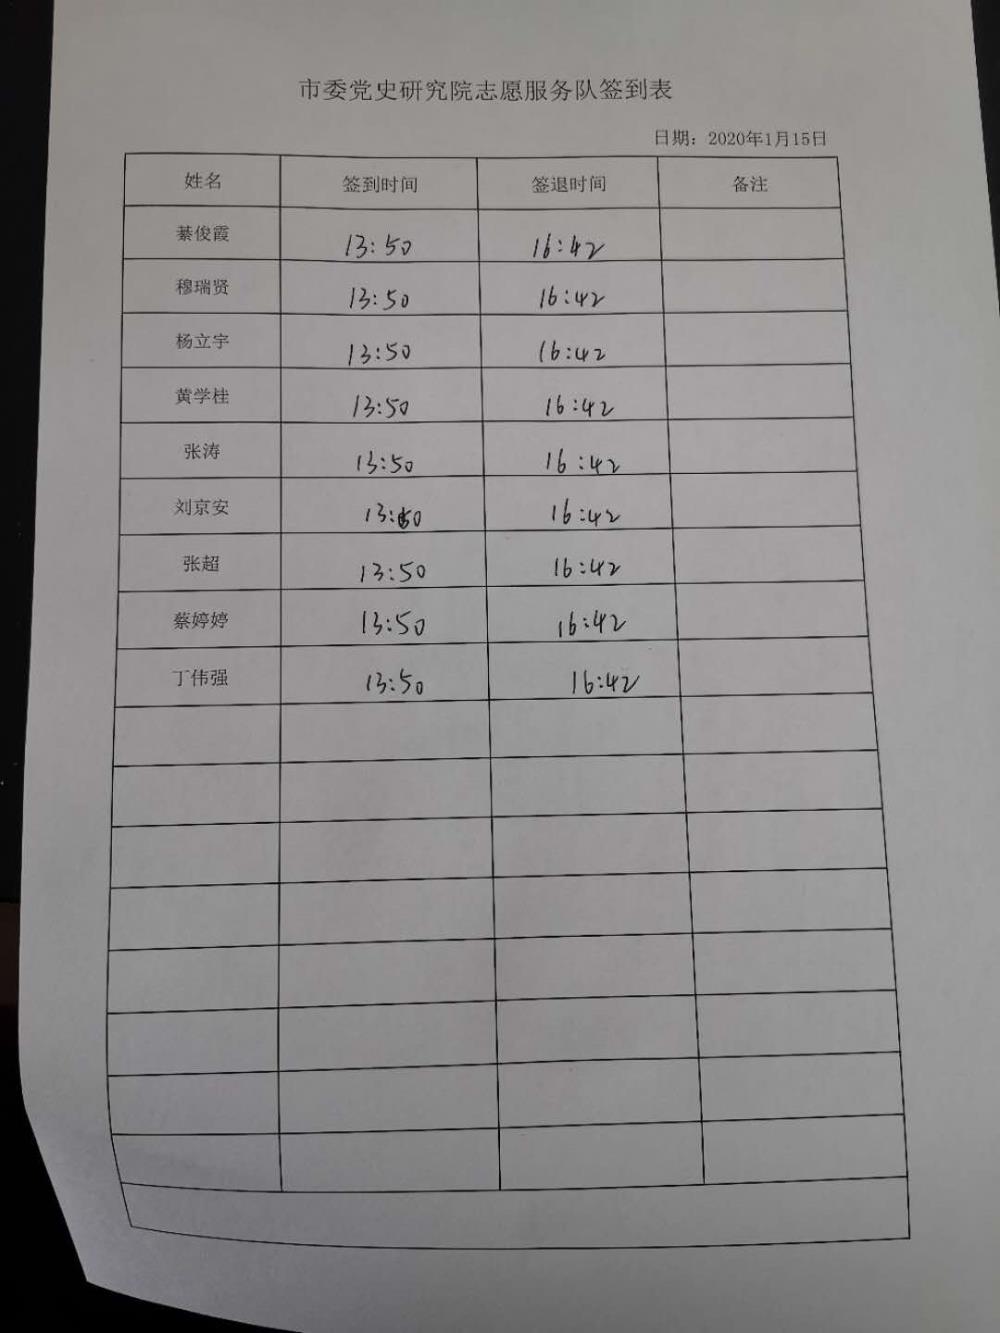 市委党史研究院志愿服务队签到表
日期：2020年1月15日
姓名 签到时间 签退时间 备注
綦俊霞 13:50 16:42
穆瑞贤 13:50 16:42
杨立宇 13:50 16:42
黄学桂 13:50 16:42
张涛 13:50 16:42
刘京安 13:50 16:42
张超 13:50 16:42
蔡婷婷 13:50 16:42
丁伟强 13:50 16:42